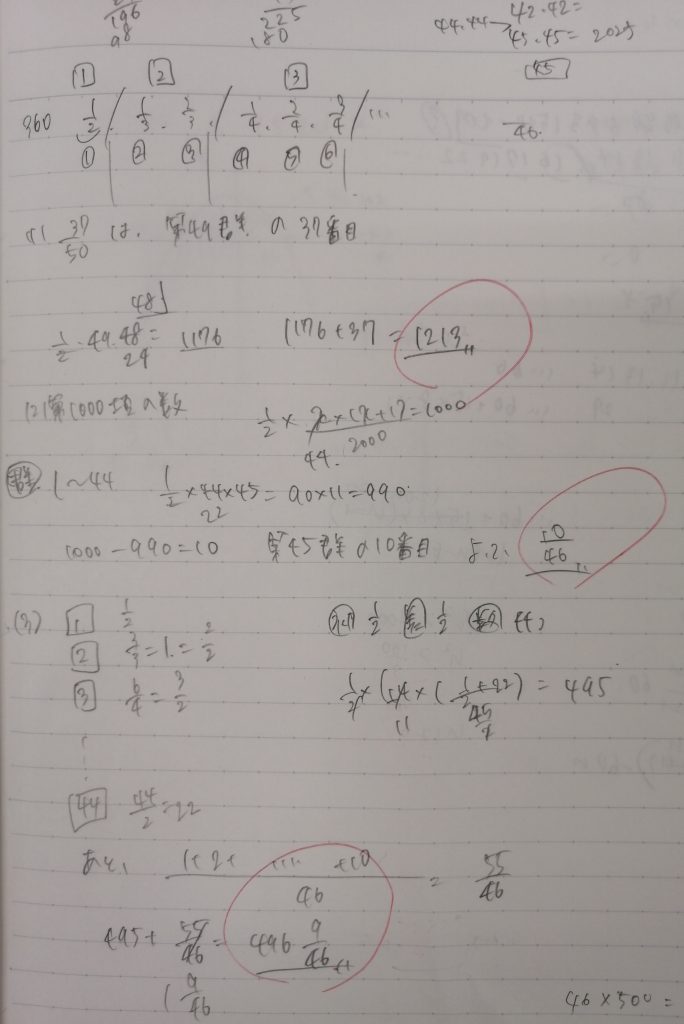 196
98
225
180
44.44→ 42.42=
45.45=2025
45
1 2 3
360 1/2 / 1/3. 2/3. / 1/4. 2/4. 3/4 / ...
① ② ③ ④ ⑤ ⑥
/46.
(1) 37/50 は. 第49群 の 37番目
48
1/2 . 49.48 = 1176 1176+37 = 1213
24
(2) 第1000項の数 1/2 × x×(x+1)=1000
44. 2000
群 1~44 1/2 ×44×45= 90×11=990
22
1000-990=10 第45群の10番目 よって、 10/46
(3) 1 1/2
2 3/3=1.=2/2
3 6/4=3/2
初 1/2 差 1/2 数 44
1/2×(44×(1/2+22) = 495
11 45/2
44 44/2=22
あと、 1+2+ .... +10/46 = 55/46
495+ 55/46= 496 9/46
1 9/46
46×500=